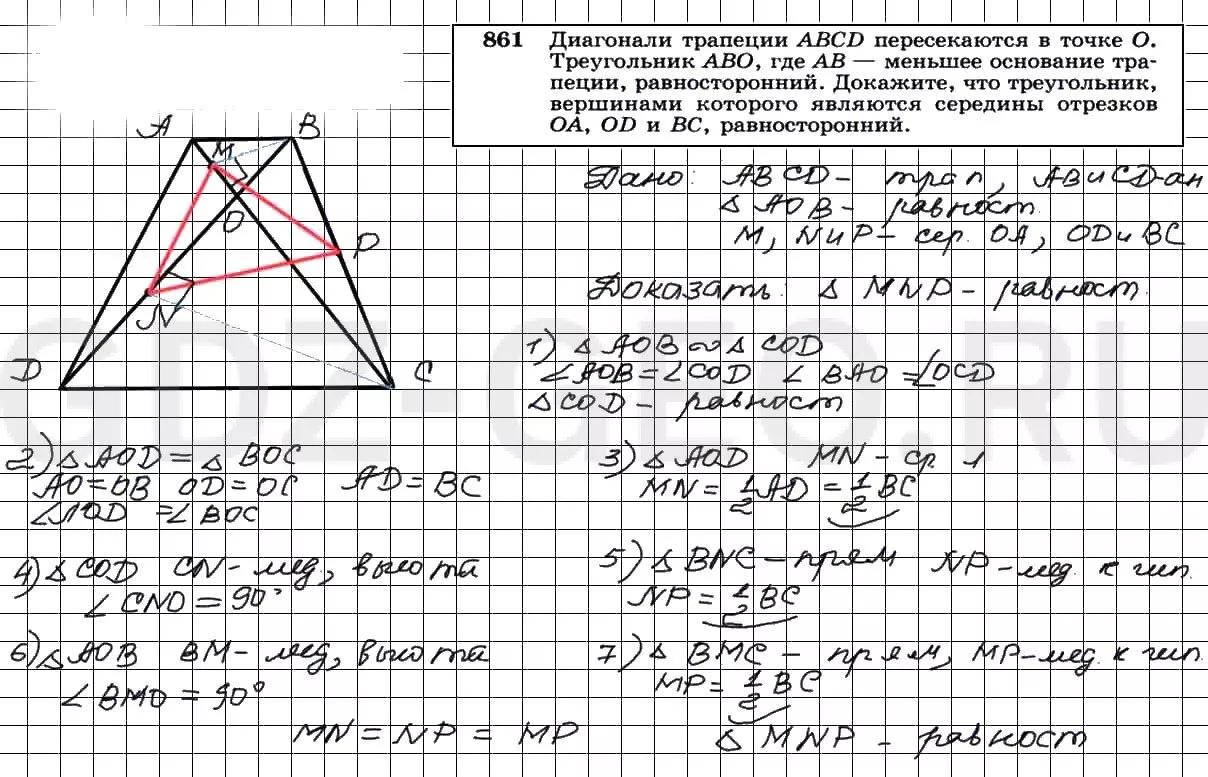 861 Диагонали трапеции ABCD пересекаются в точке O.
Треугольник ABO, где AB — меньшее основание тра-
пеции, равносторонний. Докажите, что треугольник,
вершинами которого являются середины отрезков
OA, OD и BC, равносторонний.
A B
M
O
P
N
D C
Дано: ABCD - трап, AB и CD - ан
△ AOB - равност.
M, N и P - сер. OA, OD и BC
Доказать: △ MNP - равност.
1) △ AOB ∾ △ COD
∠AOB = ∠COD ∠ BAO = ∠OCD
△ COD - равност
2) △ AOD = △ BOC
AO = OB OD = OC AD = BC
∠AOD = ∠ BOC
3) △ AOD MN - ср л
MN = 1/2 AD = 1/2 BC
4) △ COD CN - мед, высота
∠ CNO = 90°
5) △ BNC - прям NP - мед. к гип.
NP = 1/2 BC
6) △ AOB BM - мед, высота
∠ BMO = 90°
7) △ BMC - прям, MP - мед. к гип.
MP = 1/2 BC
MN = NP = MP
△ MNP - равност
GDZ-GEO.RU